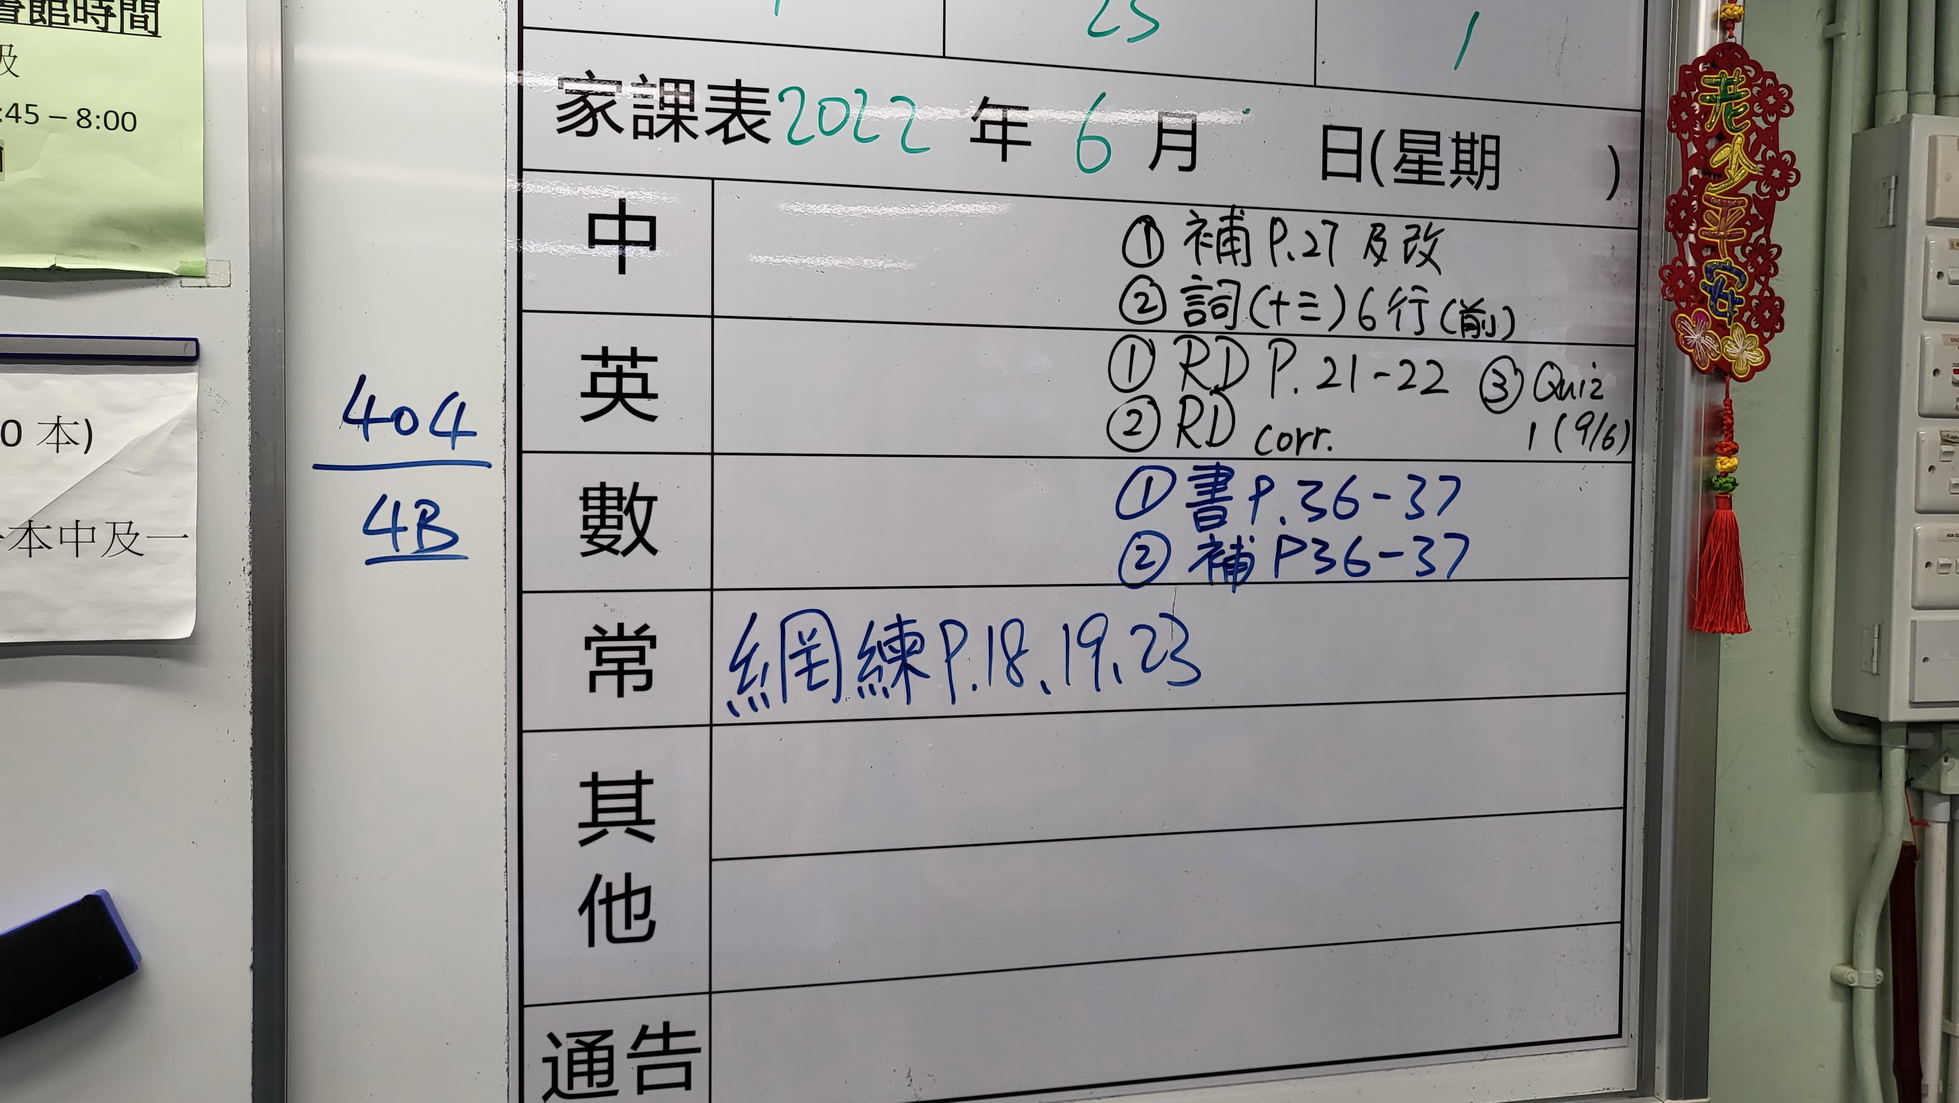 書館時間
及
:45 – 8:00
0 本)
本中及一
404
4B
25
1
家課表2022 年 6 月 日(星期 )
中
① 補 P.27 及改
② 詞(十三)6行(前)
英
① RD P. 21-22 ③ Quiz
② RD corr. 1 (9/6)
數
① 書P.36-37
② 補P36-37
常
網練P.18、19、23
其
他
通告
老少平安